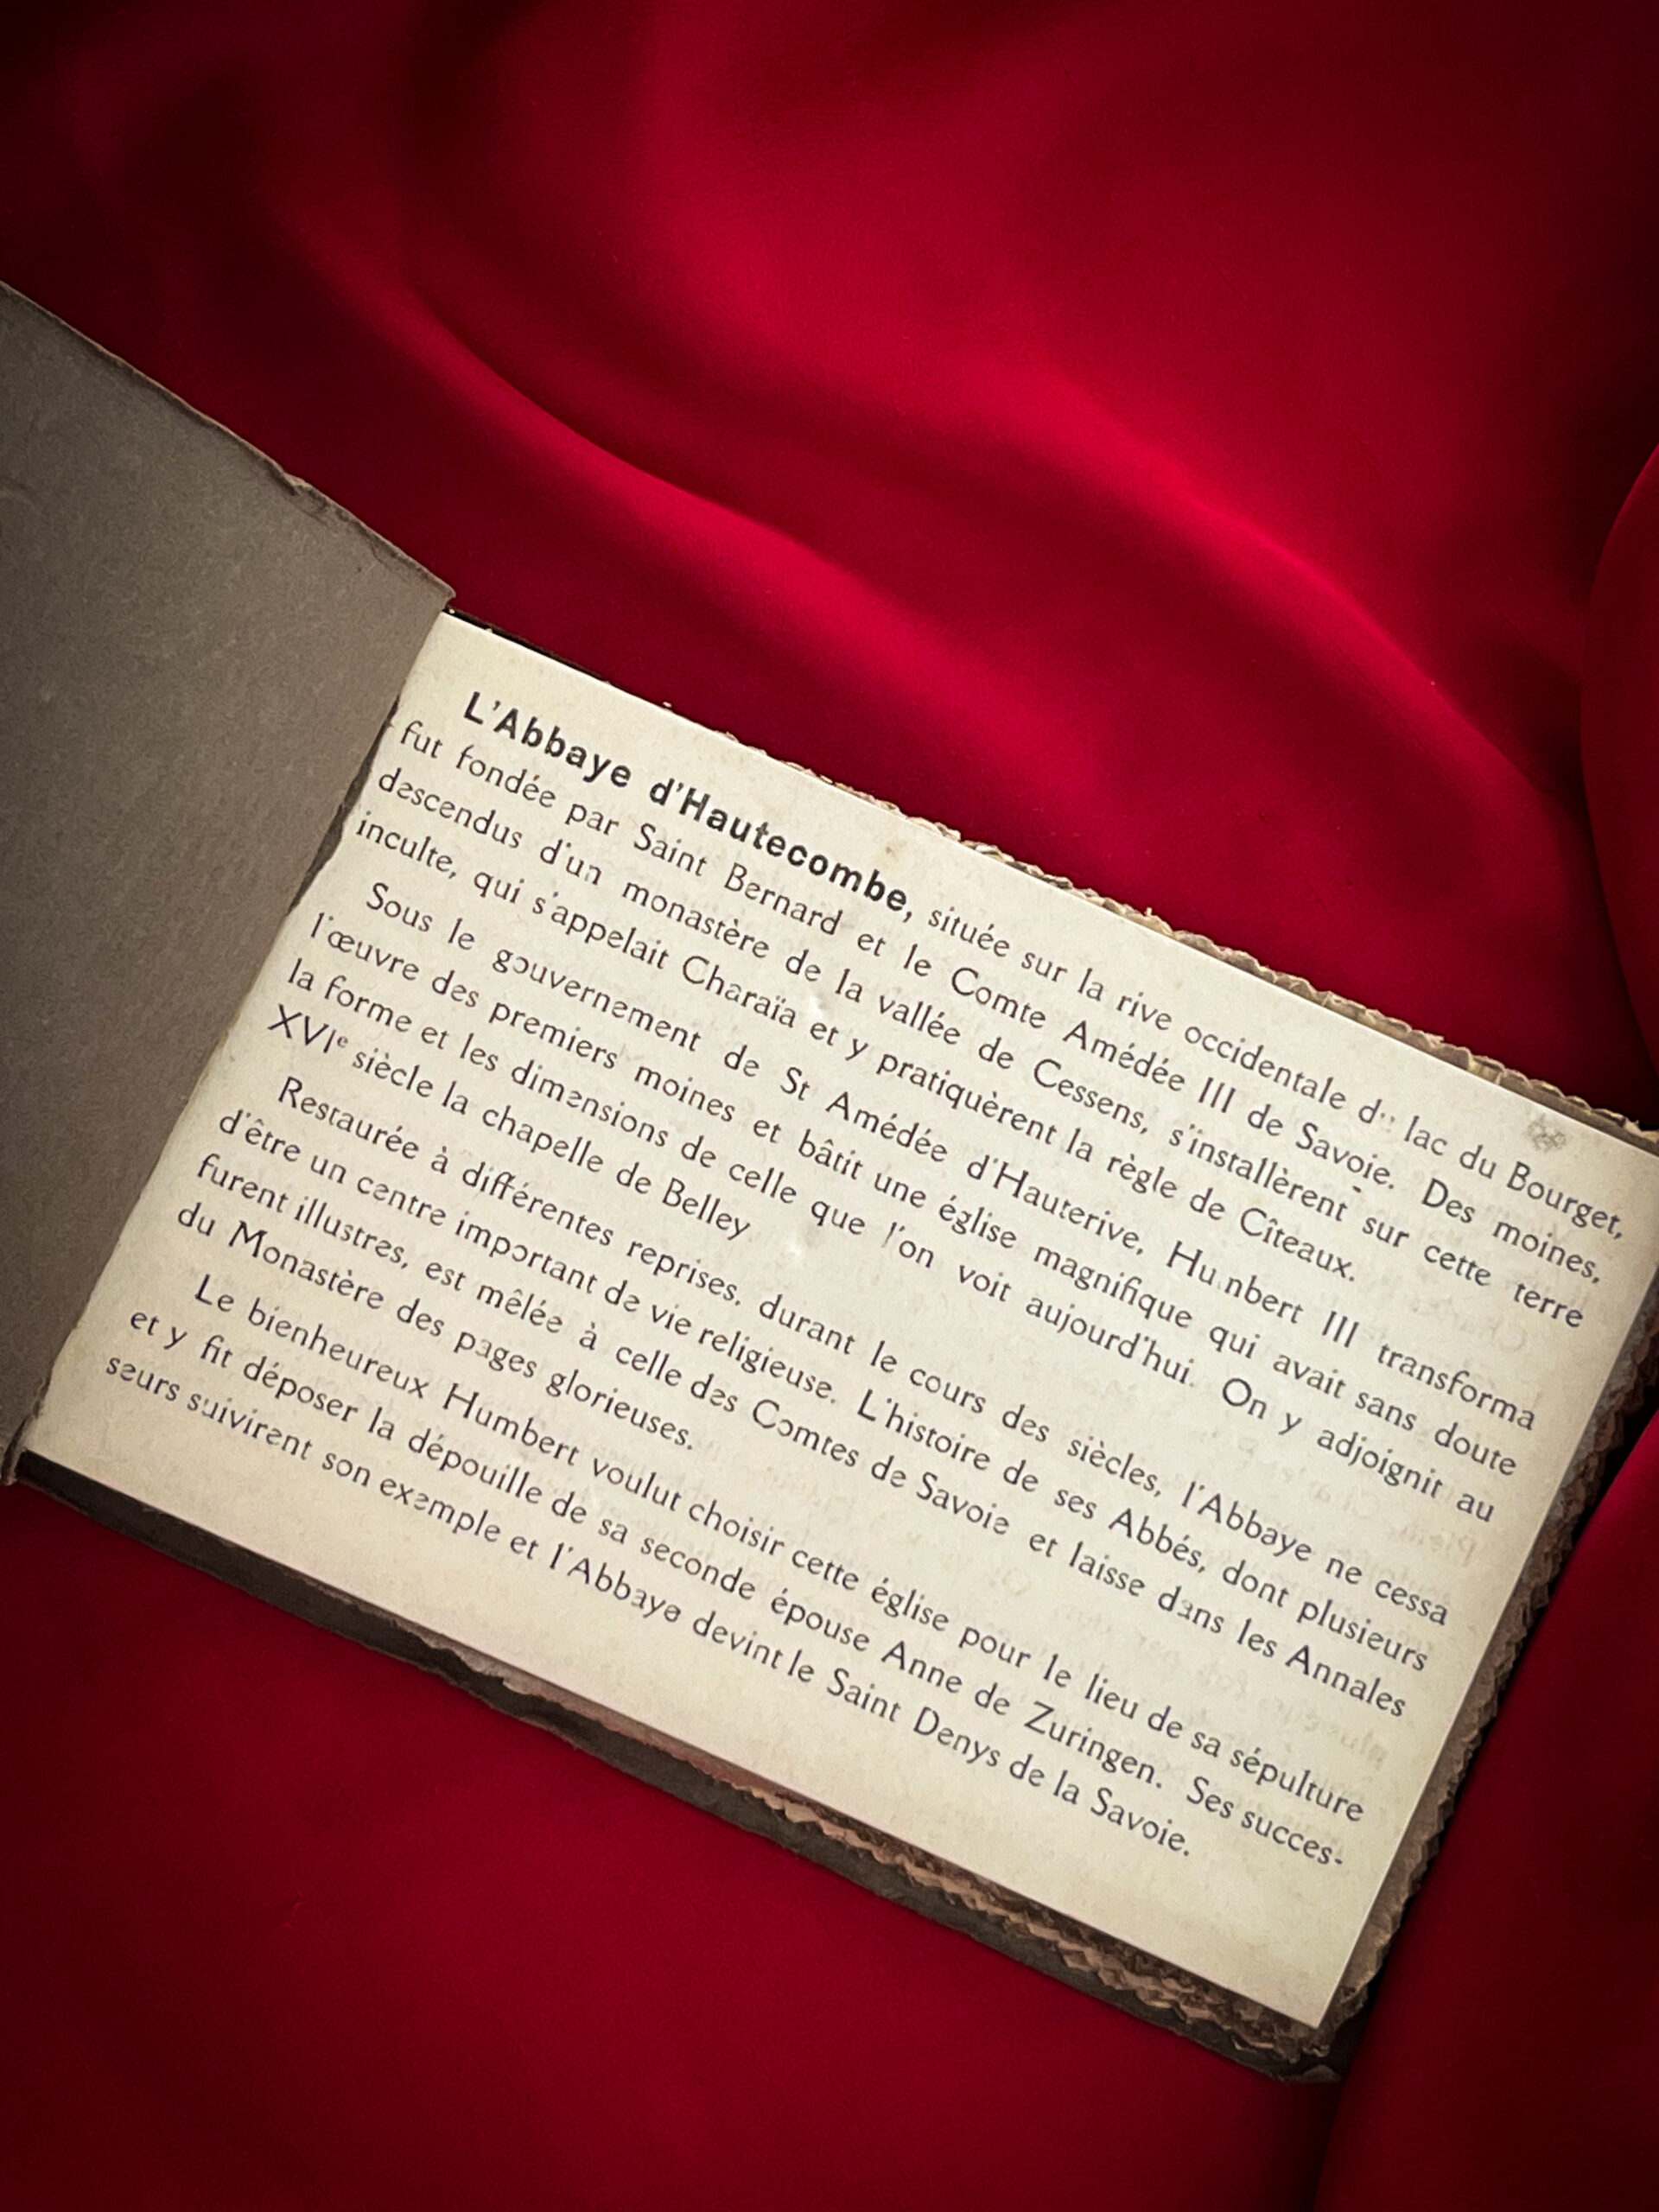 L'Abbaye d'Hautecombe, située sur la rive occidentale du lac du Bourget,
fut fondée par Saint Bernard et le Comte Amédée III de Savoie. Des moines,
descendus d'un monastère de la vallée de Cessens, s'installèrent sur cette terre
inculte, qui s'appelait Charaïa et y pratiquèrent la règle de Cîteaux.
Sous le gouvernement de St Amédée d'Hauterive, Humbert III transforma
l'œuvre des premiers moines et bâtit une église magnifique qui avait sans doute
la forme et les dimensions de celle que l'on voit aujourd'hui. On y adjoignit au
XVIe siècle la chapelle de Belley
Restaurée à différentes reprises, durant le cours des siècles, l'Abbaye ne cessa
d'être un centre important de vie religieuse. L'histoire de ses Abbés, dont plusieurs
furent illustres, est mêlée à celle des Comtes de Savoie et laisse dans les Annales
du Monastère des pages glorieuses.
Le bienheureux Humbert voulut choisir cette église pour le lieu de sa sépulture
et y fit déposer la dépouille de sa seconde épouse Anne de Zuringen. Ses succes-
seurs suivirent son exemple et l'Abbaye devint le Saint Denys de la Savoie.